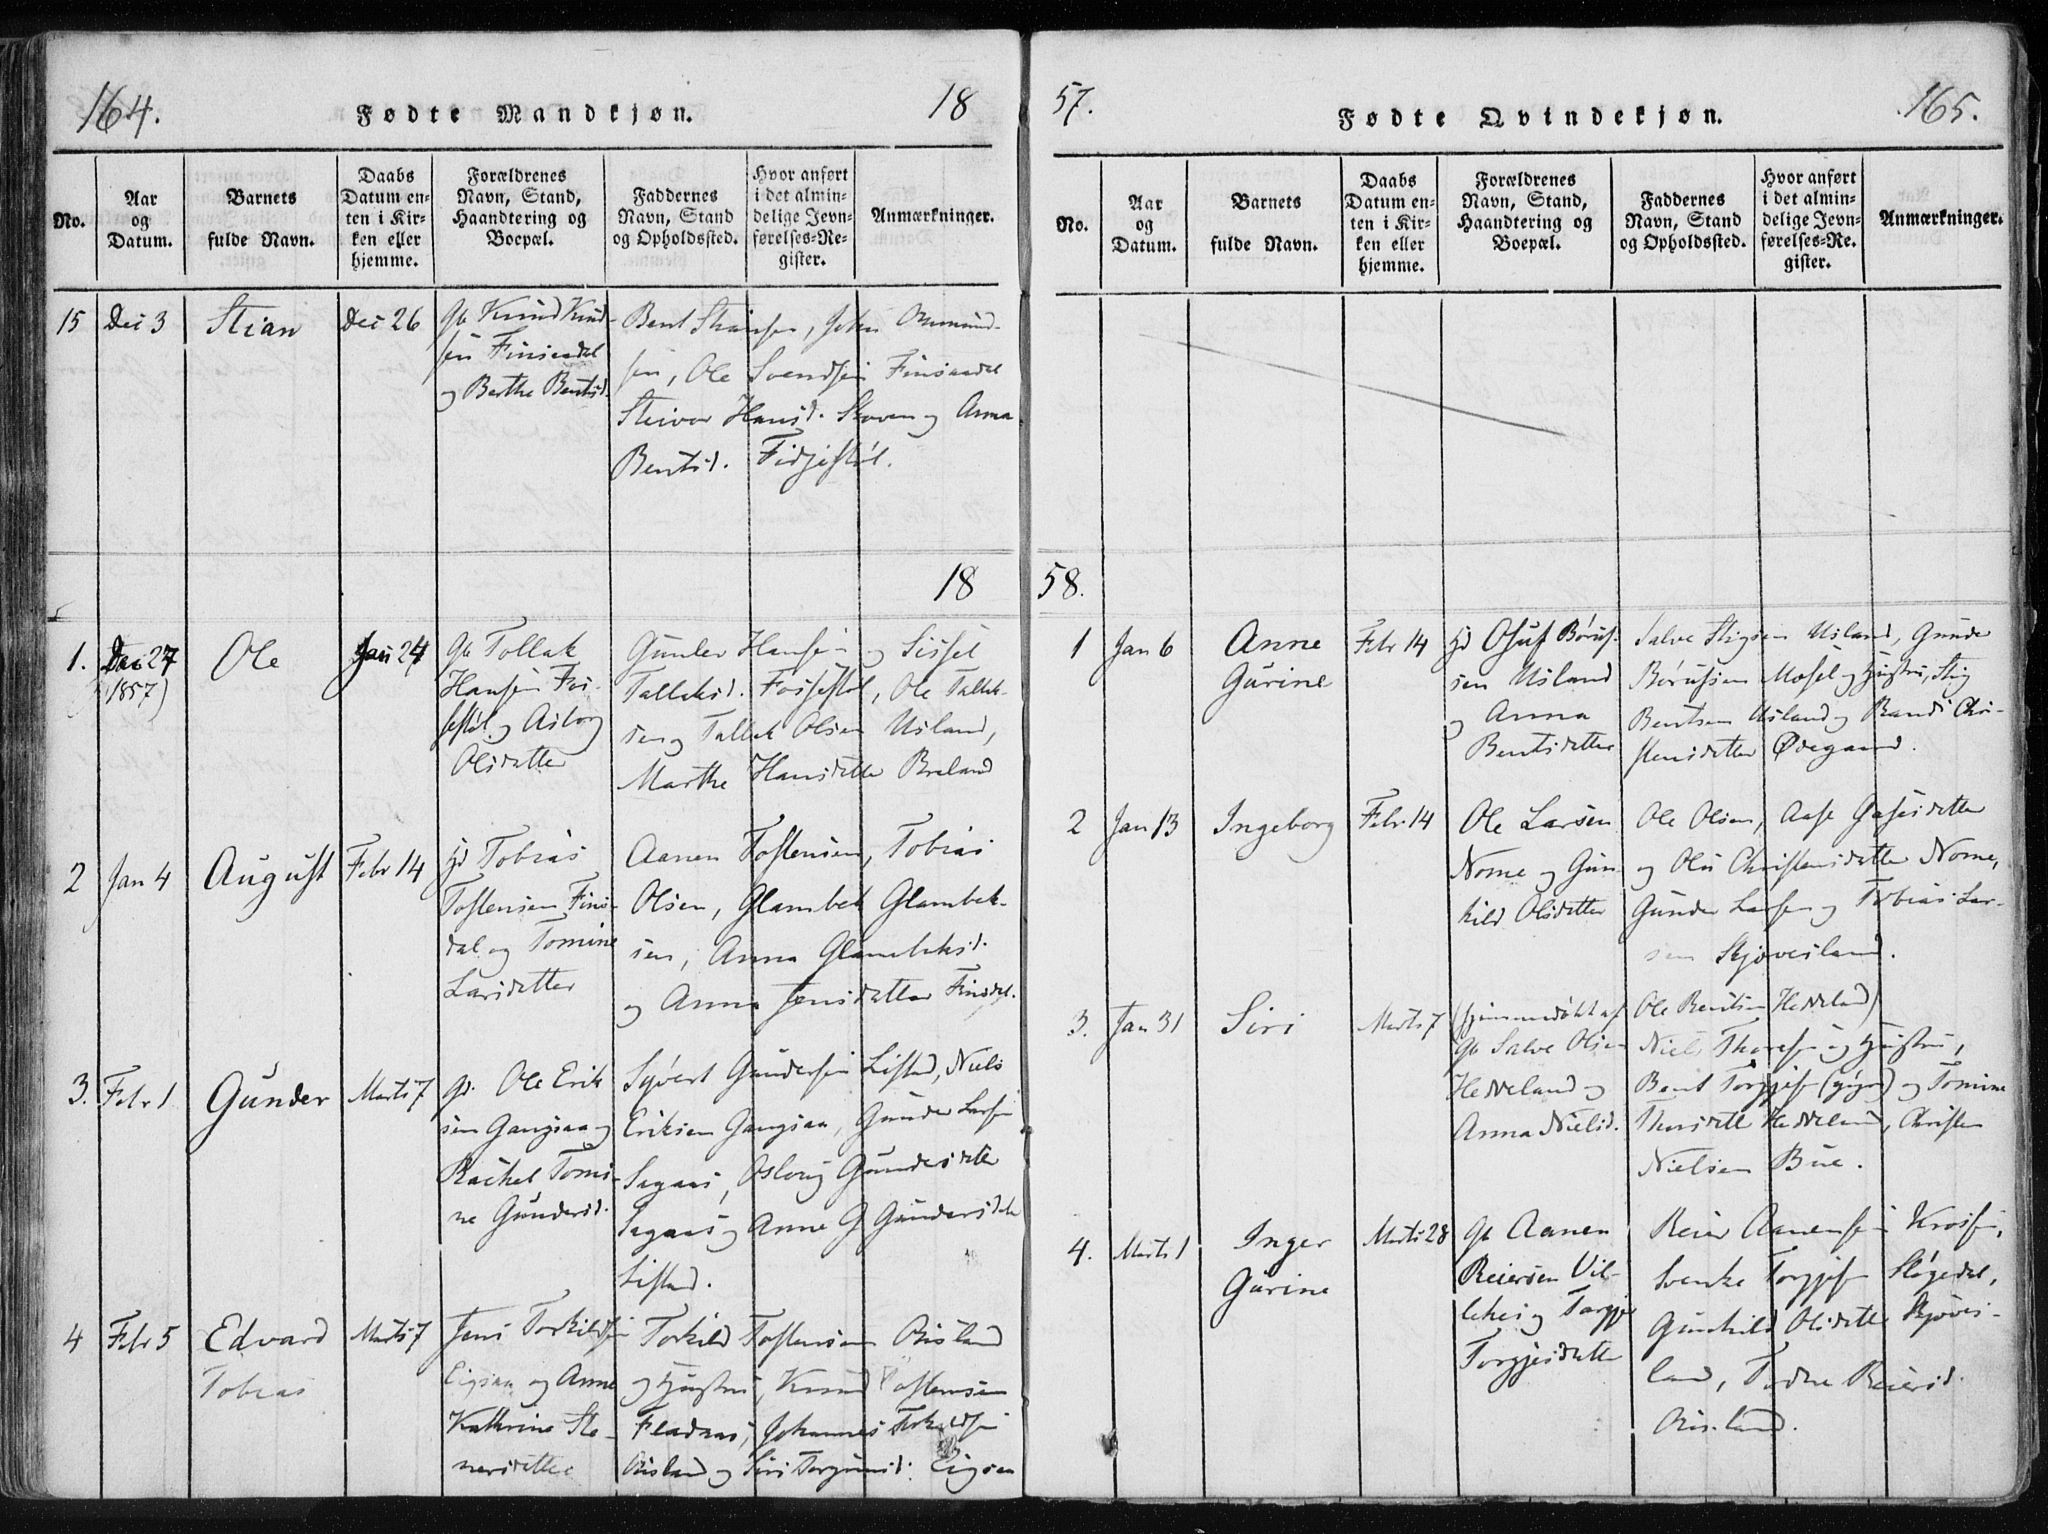 164.
Fødte Mandkjøn.
18
No.
Aar
og
Datum.
Barnets
fulde Navn.
Daabs
Datum en-
ten i Kir-
ken eller
hjemme.
Forældrenes
Navn, Stand,
Haandtering og
Boepæl.
Faddernes
Navn, Stand
og Opholdssted.
Hvor anført
i det almin-
delige Jevn-
førelses-Re-
gister.
Anmærkninger.
15
Dec 3
Stian
Dec 26
Gb Knud Knud-
sen Finsaadal
og Berthe Bentsd.
Bent Stiansen, John Omund-
sen, Ole Svendsen Finsaadal
Steivor Hansd. Skoven og Anna
Bentsd. Fidjestøl.
18
1.
Dec 27
(1857)
Ole
Jan 24
Gb Tollak
Hansen Fos-
støl og Asborg
Olsdatter
Gunder Hansen og Sissel
Talleksd. Fossestøl, Ole Tallek-
sen og Tallek Olsen Usland,
Marthe Hansdatter Breland
2
Jan 4
August
Febr 14
Tobias
Tostensen Fins-
dal og Tomine
Larsdatter
Aanen Tostensen, Tobias
Olsen, Glambek Glambek-
sen, Anna Glambeksd.
og Anna Jensdatter Finsdal.
3.
Febr 1
Gunder
Marts 7
Ole Erik
sen Gangsaa og
Rachel Tomi-
ne Gundersd.
Syvert Gundersen Listad, Niels
Eriksen Gangsaa, Gunder Larsen
Sagaas, Osloug Gundersdatter
Sagaas og Anne G Gundersdatter
Listad.
4
Febr 5
Edvard
Tobias
Marts 7
Jens Torkildsen
Eigsaa og Anne
Kathrine Ste-
nersdatter
Torkild Tostensen Risland
og Hustru, Knud Tostensen
Fladaas, Johannes Torkildsen
Risland og Siri Torgrimsd. Eigsaa
57.
Fødte Qvindekjøn.
165.
No.
Aar
og
Datum.
Barnets
fulde Navn.
Daabs
Datum en-
ten i Kir-
ken eller
hjemme.
Forældrenes
Navn, Stand,
Haandtering og
Boepæl.
Faddernes
Navn, Stand
og Opholdssted.
Hvor anført
i det almin-
delige Jevn-
førelses-Re-
gister.
Anmærkninger.
58.
1
Jan 6
Anne
Gurine
Febr 14
Osuf Børuf-
sen Usland
og Anna
Bentsdatter
Salve Stigsen Usland, Gunder
Børufsen Mosel og Hustru, Stig
Bentsen Usland og Randi Chri-
stensdatter Ødegaard.
2
Jan 13
Ingeborg
Febr 14
Ole Larsen
Nome og Gun-
hild Olsdatter
Ole Olsen, Aase datter
og Christensdatter Nome,
Gunder Larsen og Tobias Lar-
sen Skjøvesland.
3.
Jan 31
Siri
Marts 7
(hjemmedøbt af
Gb Salve Olsen
Heddeland og
Anna Nielsd.
Ole Bentsen Heddeland)
Niels Thorsen og Hustru,
Bent Torgjesen og Tomine
Thorsdatter Heddeland, Christen
Nielsen Bue.
4.
Marts 1
Inger
Gurine
Marts 28
Gb Aanen
Reiersen Vil-
og
Torgjesdatter
Reier Aanensen
Svenke Torgjesen Støgedal,
Gunhild Olsdatter Skjøves-
land, Reiersd.
Risland.